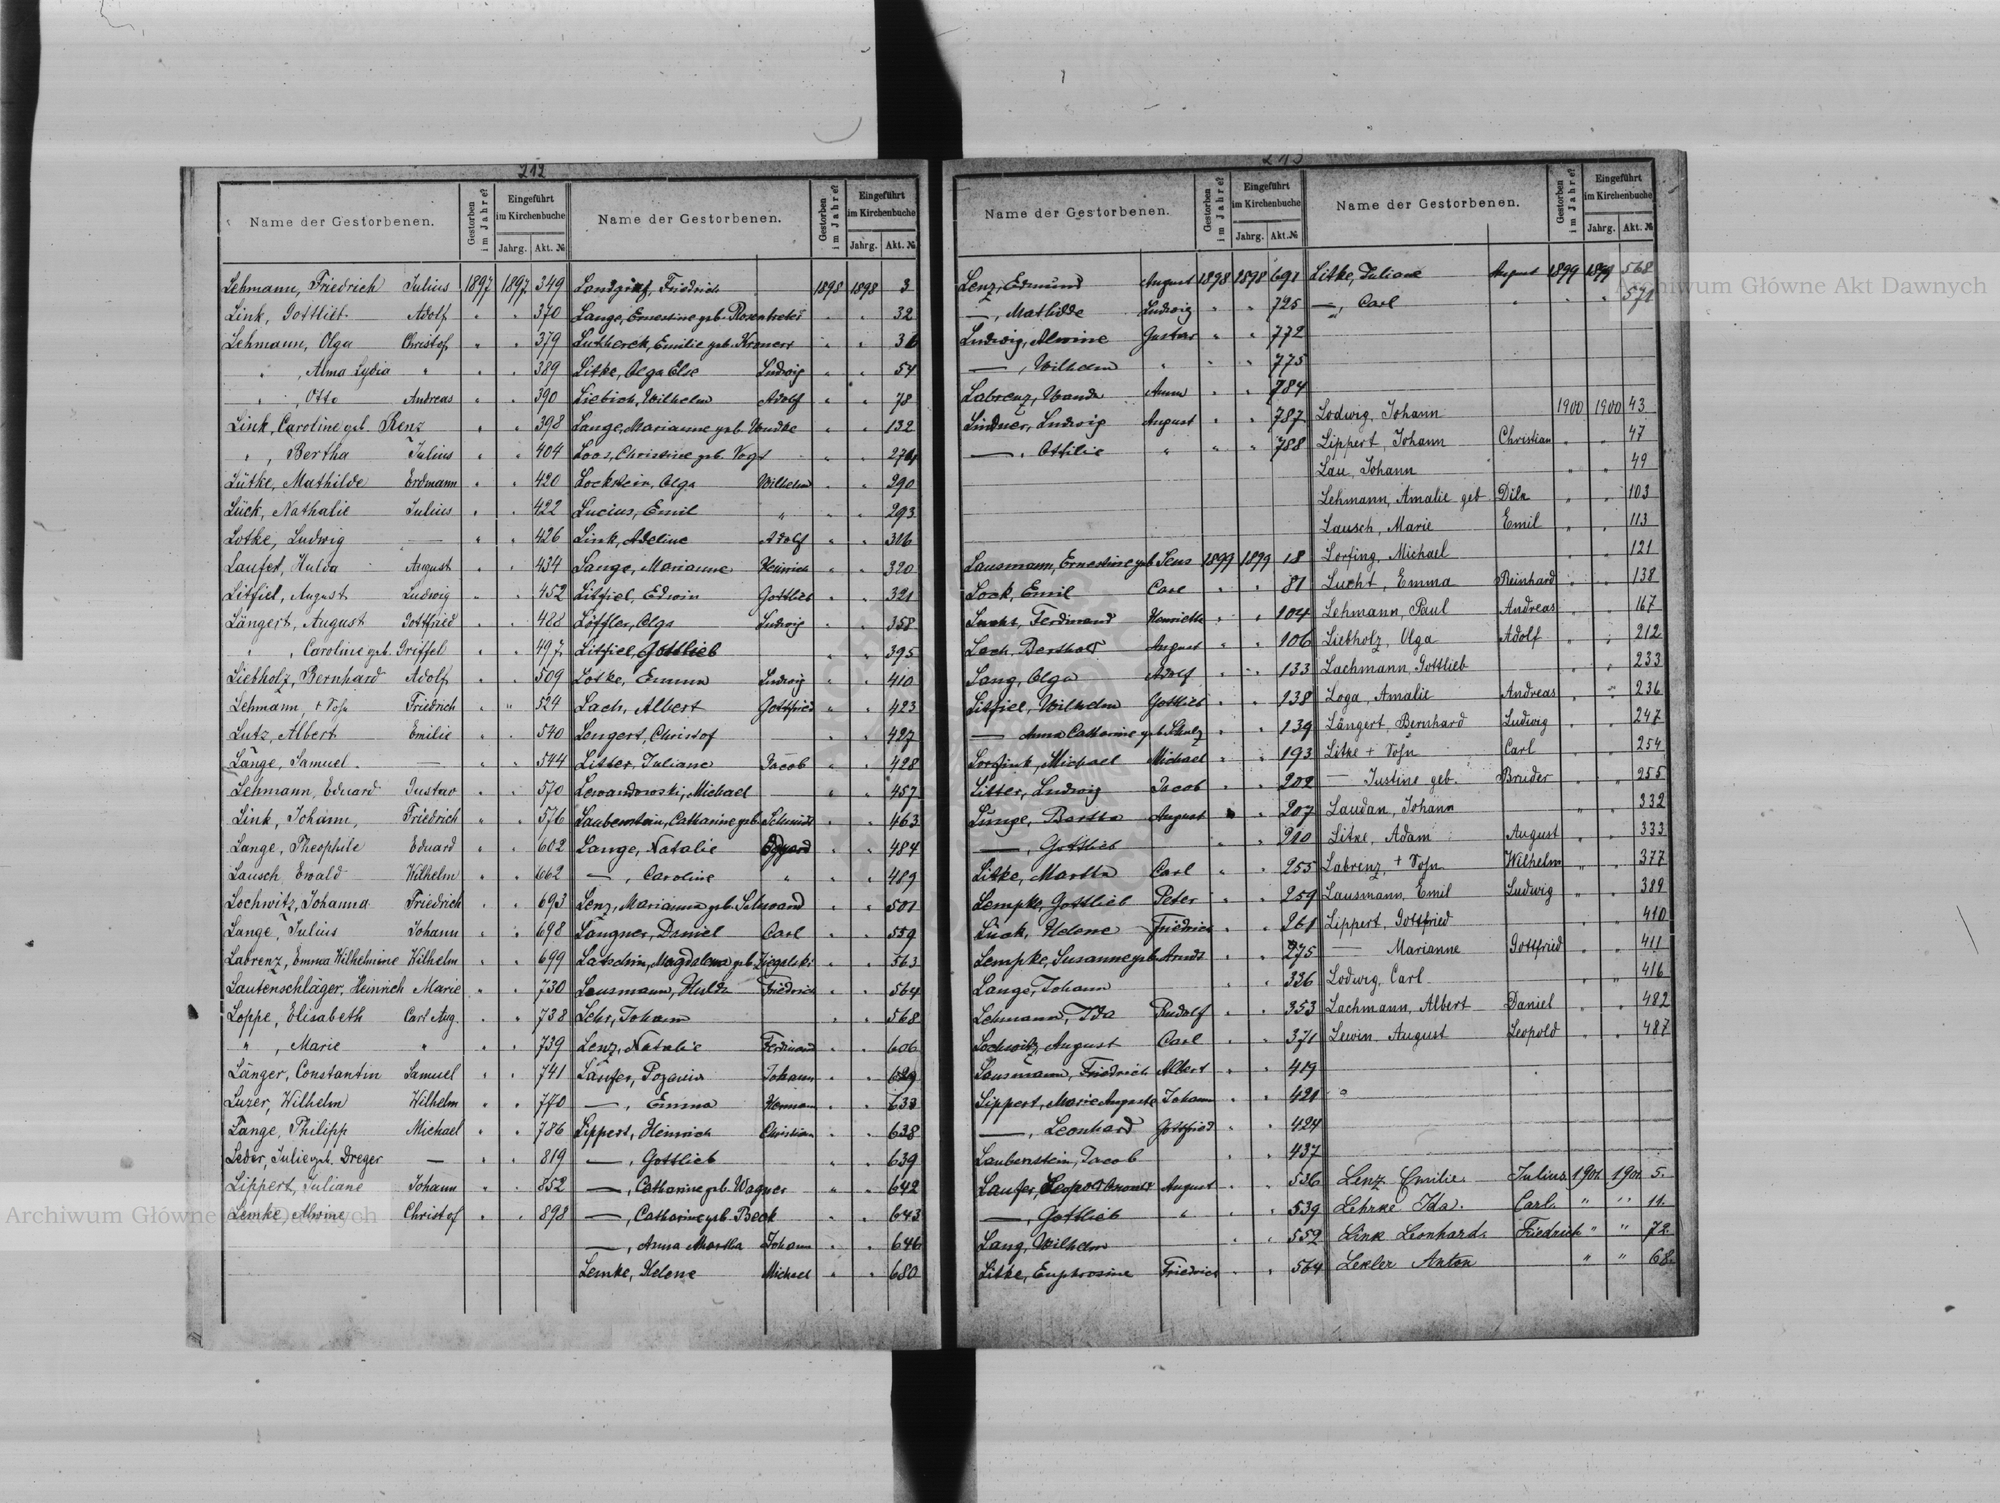 212
Name der Gestorbenen. Gestorben im Jahre? Eingeführt im Kirchenbuche Jahrg. Akt. №
Lehmann, Friedrich Julius 1897 1897 349
Link, Gottlieb Adolf " " 370
Lehmann, Olga Christof " " 379
" , Alma Lydia " " " 389
" , Otto Andreas " " 390
Link, Caroline geb. Renz " " 398
" , Bertha Julius " " 404
Lütke, Mathilde Erdmann " " 420
Lück, Nathalie Julius " " 422
Lotke, Ludwig — " " 426
Laufer, Hulda August " " 434
Litfiel, August Ludwig " " 452
Längert, August Gottfried " " 488
" , Caroline geb. Griffel " " 497
Liebholz, Bernhard Adolf " " 509
Lehmann, + Sohn Friedrich " " 524
Lutz, Albert Emilie " " 540
Lange, Samuel — " " 544
Lehmann, Eduard Gustav " " 570
Link, Johann, Friedrich " " 576
Lange, Theophile Eduard " " 602
Lausch, Ewald Wilhelm " " 662
Lochwitz, Johanna Friedrich " " 693
Lange, Julius Johann " " 698
Labrenz, Emma Wilhelmine Wilhelm " " 699
Lautenschläger, Heinrich Marie " " 730
Loppe, Elisabeth Carl Aug. " " 738
" , Marie " " " 739
Länger, Constantin Samuel " " 741
Luzer, Wilhelm Wilhelm " " 770
Lange, Philipp Michael " " 786
Leder, Julie geb. Dreger — " " 819
Lippert, Juliane Johann " " 852
Lemke, Alwine Christof " " 898
Name der Gestorbenen. Gestorben im Jahre? Eingeführt im Kirchenbuche Jahrg. Akt. №
Landgraf, Friedrich 1898 1898 3
Lange, Ernestine geb. Rosentreter " " 32
Emilie geb. " "
Litke, Olga Else Ludwig " " 54
Liebich, Wilhelm Adolf " " 78
Lange, Marianne geb. " " 132
Loos, Christine geb. Vogt " "
Lockstein, Olga Wilhelm " " 290
Lucius, Emil " " " 293
Link, Adeline Adolf " " 316
Lange, Marianne Heinrich " " 320
Litfiel, Edwin Gottlieb " " 321
Löffler, Olga Ludwig " " 358
Litfiel, Gottlieb " " 395
Lotke, Emma Ludwig " " 410
Lach, Albert Gottfried " " 423
Langert, Christof " " 427
Litter, Juliane Jacob " " 428
Lewandowski, Michael — " " 457
Laubenstein, Catharine geb. Schmidt " " 463
Lange, Natalie Eduard " " 484
— , Caroline " " " 489
Lenz, Marianne geb. Schwand " " 501
Langner, Daniel Carl " " 559
Magdalena geb. " " 563
Lausmann, Hulda Friedrich " " 564
Lehr, Johann " " 568
Lenz, Natalie Ferdinand " " 606
Läufer, Johann " "
— , Emma Herman " " 633
Lippert, Heinrich Christian " " 638
— , Gottlieb " " 639
— , Catharine geb. Wagner " " 642
— , Catharine geb. Beck " " 643
— , Anna Martha Johann " " 646
Lemke, Helene Michael " " 680
Name der Gestorbenen. Gestorben im Jahre? Eingeführt im Kirchenbuche Jahrg. Akt. №
Lenz, Edmund August 1898 1898 691
— , Mathilde Ludwig " " 725
Ludwig, Alwine Gustav " " 772
— , Wilhelm " " " 775
Labrenz, Wanda Anna " " 784
Lindner, Ludwig August " " 787
— , Ottilie " " " 788
Lausmann, Ernestine geb. Sens 1899 1899 18
Look, Emil Carl " " 81
Ferdinand Henriette " " 104
Lach, Berthold August " " 106
Lang, Olga Adolf " " 133
Litfiel, Wilhelm Gottlieb " " 138
— Anna Catharine geb. Schulz " " 139
Michael Michael " " 193
Litter, Ludwig Jacob " " 202
Lange, Bertha August " " 207
— , Gottlieb " " 210
Litke, Martha Carl " " 255
Lempke, Gottlieb Peter " " 259
Lück, Helene Friedrich " " 261
Lempke, Susanne geb. Arndt " " 275
Lange, Johann " " 336
Lehmann, Ida Rudolf " " 353
Lochwitz, August Carl " " 371
Lausmann, Friedrich Albert " " 419
Lippert, Marie Auguste Johann " " 421
— , Leonhard Gottfried " " 424
Laubenstein, Jacob " " 437
Laufer, August " " 536
— , Gottlieb " " " 539
Lang, Wilhelm " " 552
Litke, Euphrosine Friedrich " " 564
Name der Gestorbenen. Gestorben im Jahre? Eingeführt im Kirchenbuche Jahrg. Akt. №
Litke, Juliane August 1899 1899 568
— , Carl " " " 571
Lodwig, Johann 1900 1900 43
Lippert, Johann Christian " " 47
Lau, Johann " " 49
Lehmann, Amalie geb. " " 103
Lausch, Marie Emil " " 113
Lorfing, Michael " " 121
Lucht, Emma Reinhard " " 138
Lehmann, Paul Andreas " " 167
Liebholz, Olga Adolf " " 212
Lachmann, Gottlieb " " 233
Loga, Amalie Andreas " " 236
Längert, Bernhard Ludwig " " 247
Litke + Sohn Carl " " 254
— Justine geb. Brüder " " 255
Laudan, Johann " " 332
Litke, Adam August " " 333
Labrenz, + Sohn Wilhelm " " 377
Lausmann, Emil Ludwig " " 389
Lippert, Gottfried " " 410
— Marianne Gottfried " " 411
Lodwig, Carl " " 416
Lachmann, Albert Daniel " " 482
Lewin, August Leopold " " 487
Lenz Emilie. Julius 1901. 1901. 5.
Lehrke Ida. Carl. " " 11.
Link Leonhard. Friedrich " " 72.
Lekler Anton " " 68.
Archiwum Główne Akt Dawnych
Archiwum Główne Akt Dawnych